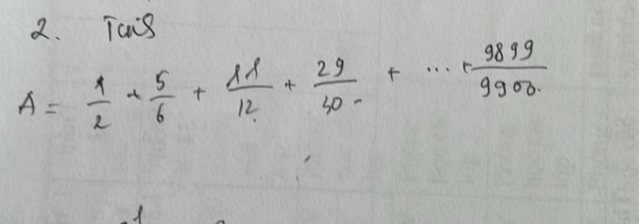 2. Tính
A = 1/2 + 5/6 + 11/12 + 29/30 + ... + 9899/9900